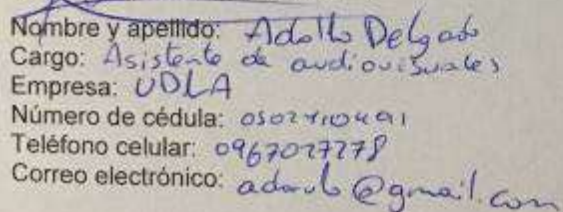 Nombre y apellido: Adolfo Delgado
Cargo: Asistente de audiovisuales
Empresa: UDLA
Número de cédula:
Teléfono celular: 0967027278
Correo electrónico: @gmail.com